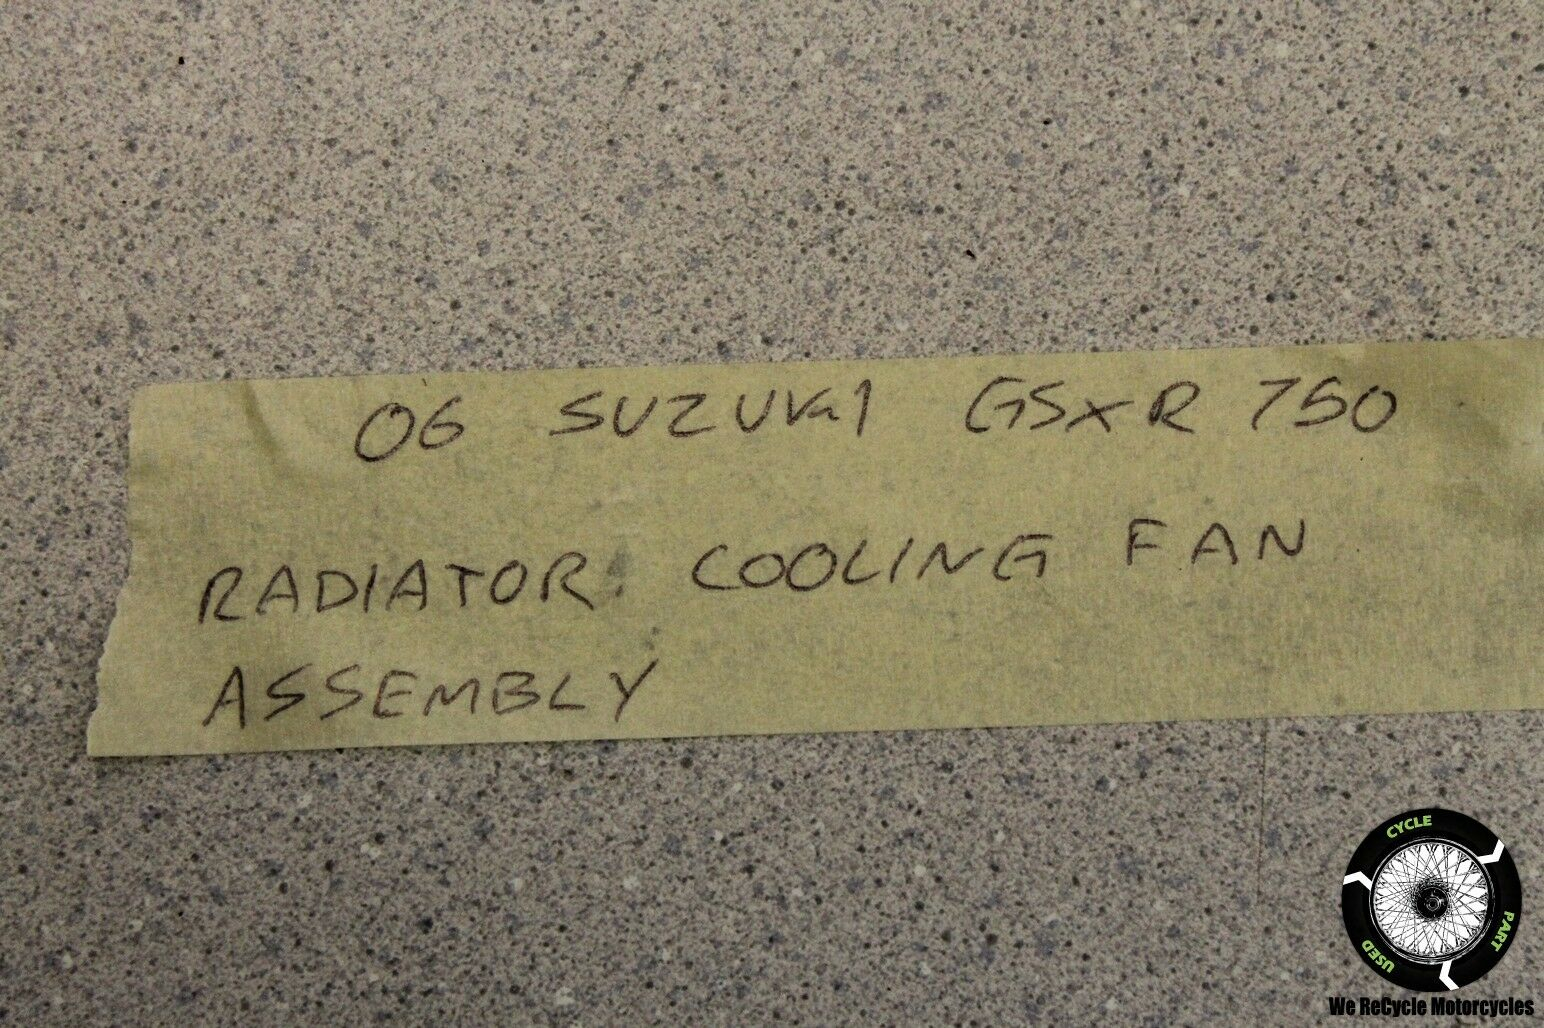 06 SUZUKI GSXR 750
RADIATOR COOLING FAN
ASSEMBLY
CYCLE
PART
USED
We ReCycle Motorcycles